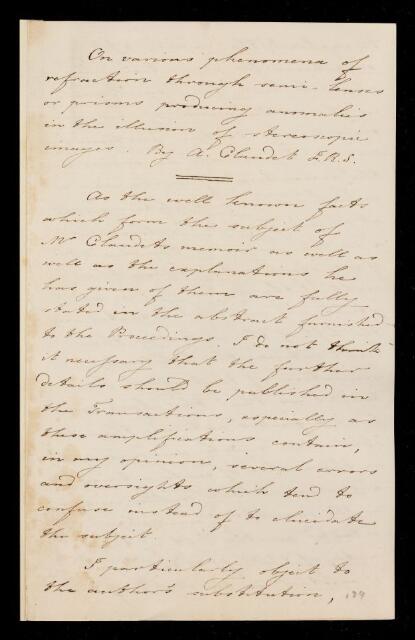 On various phenomena of
refraction through semi-lenses
or prisms producing anomalies
in the illusion of stereoscopic
images. By A. Claudet F.R.S.
As the well known facts
which form the subject of
Mr Claudet's memoir as well as
well as the explanations he
has given of them are fully
stated in the abstract furnished
to the Proceedings, I do not think
it necessary that the further
details should be published in
the Transactions, especially as
these amplifications contain,
in my opinion, several errors
and oversights which tend to
confuse instead of to elucidate
the subject.
I particularly object to
the author's substitution,